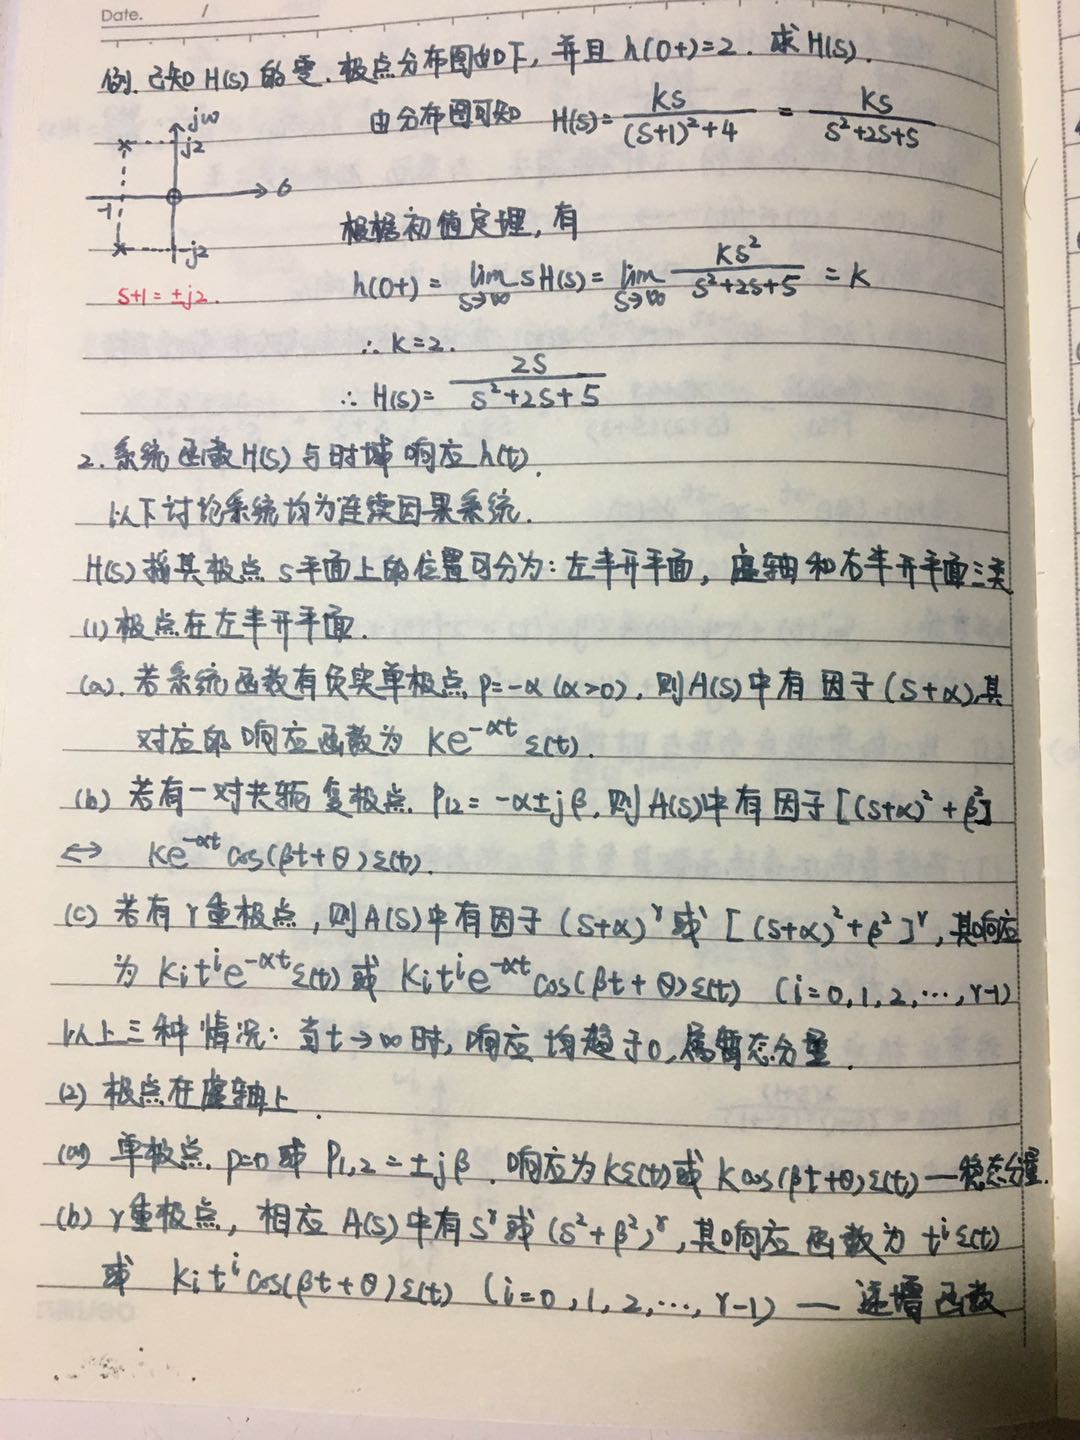 Date. /
例.已知 H(s) 的零.极点分布图如下,并且 h(0+)=2. 求 H(s).
由分布图可知 H(s)= Ks/((s+1)²+4) = Ks/(s²+2s+5)
jω
j2
σ
-1
-j2
s+1=±j2.
根据初值定理,有
h(0+) = lim s→∞ sH(s) = lim s→∞ Ks²/(s²+2s+5) = K
∴ K=2.
∴ H(s)= 2s/(s²+2s+5)
2.系统函数H(s)与时域响应h(t).
以下讨论系统均为连续因果系统.
H(s)按其极点s平面上的位置可分为:左半开平面,虚轴和右半开平面三类
(1)极点在左半开平面.
(a).若系统函数有负实单极点 p=-α(α>0),则A(s)中有因子(s+α),其
对应的响应函数为 Ke^{-αt}ε(t).
(b)若有一对共轭复极点 P12=-α±jβ,则A(s)中有因子[(s+α)²+β²]
↔ Ke^{-αt}cos(βt+θ)ε(t).
(c)若有r重极点,则A(s)中有因子(s+α)^r或[(s+α)²+β²]^r,其响应
为 Kitⁱe^{-αt}ε(t)或 Kitⁱe^{-αt}cos(βt+θ)ε(t) (i=0,1,2,…,r-1)
以上三种情况:当t→∞时,响应均趋于0,属暂态分量.
(2)极点在虚轴上.
(a)单极点 p=0或 P1,2=±jβ.响应为Kε(t)或Kcos(βt+θ)ε(t)—稳态分量.
(b)r重极点,相应A(s)中有s^r或(s²+β²)^r,其响应函数为tⁱε(t)
或 Kitⁱcos(βt+θ)ε(t) (i=0,1,2,…,r-1) — 递增函数